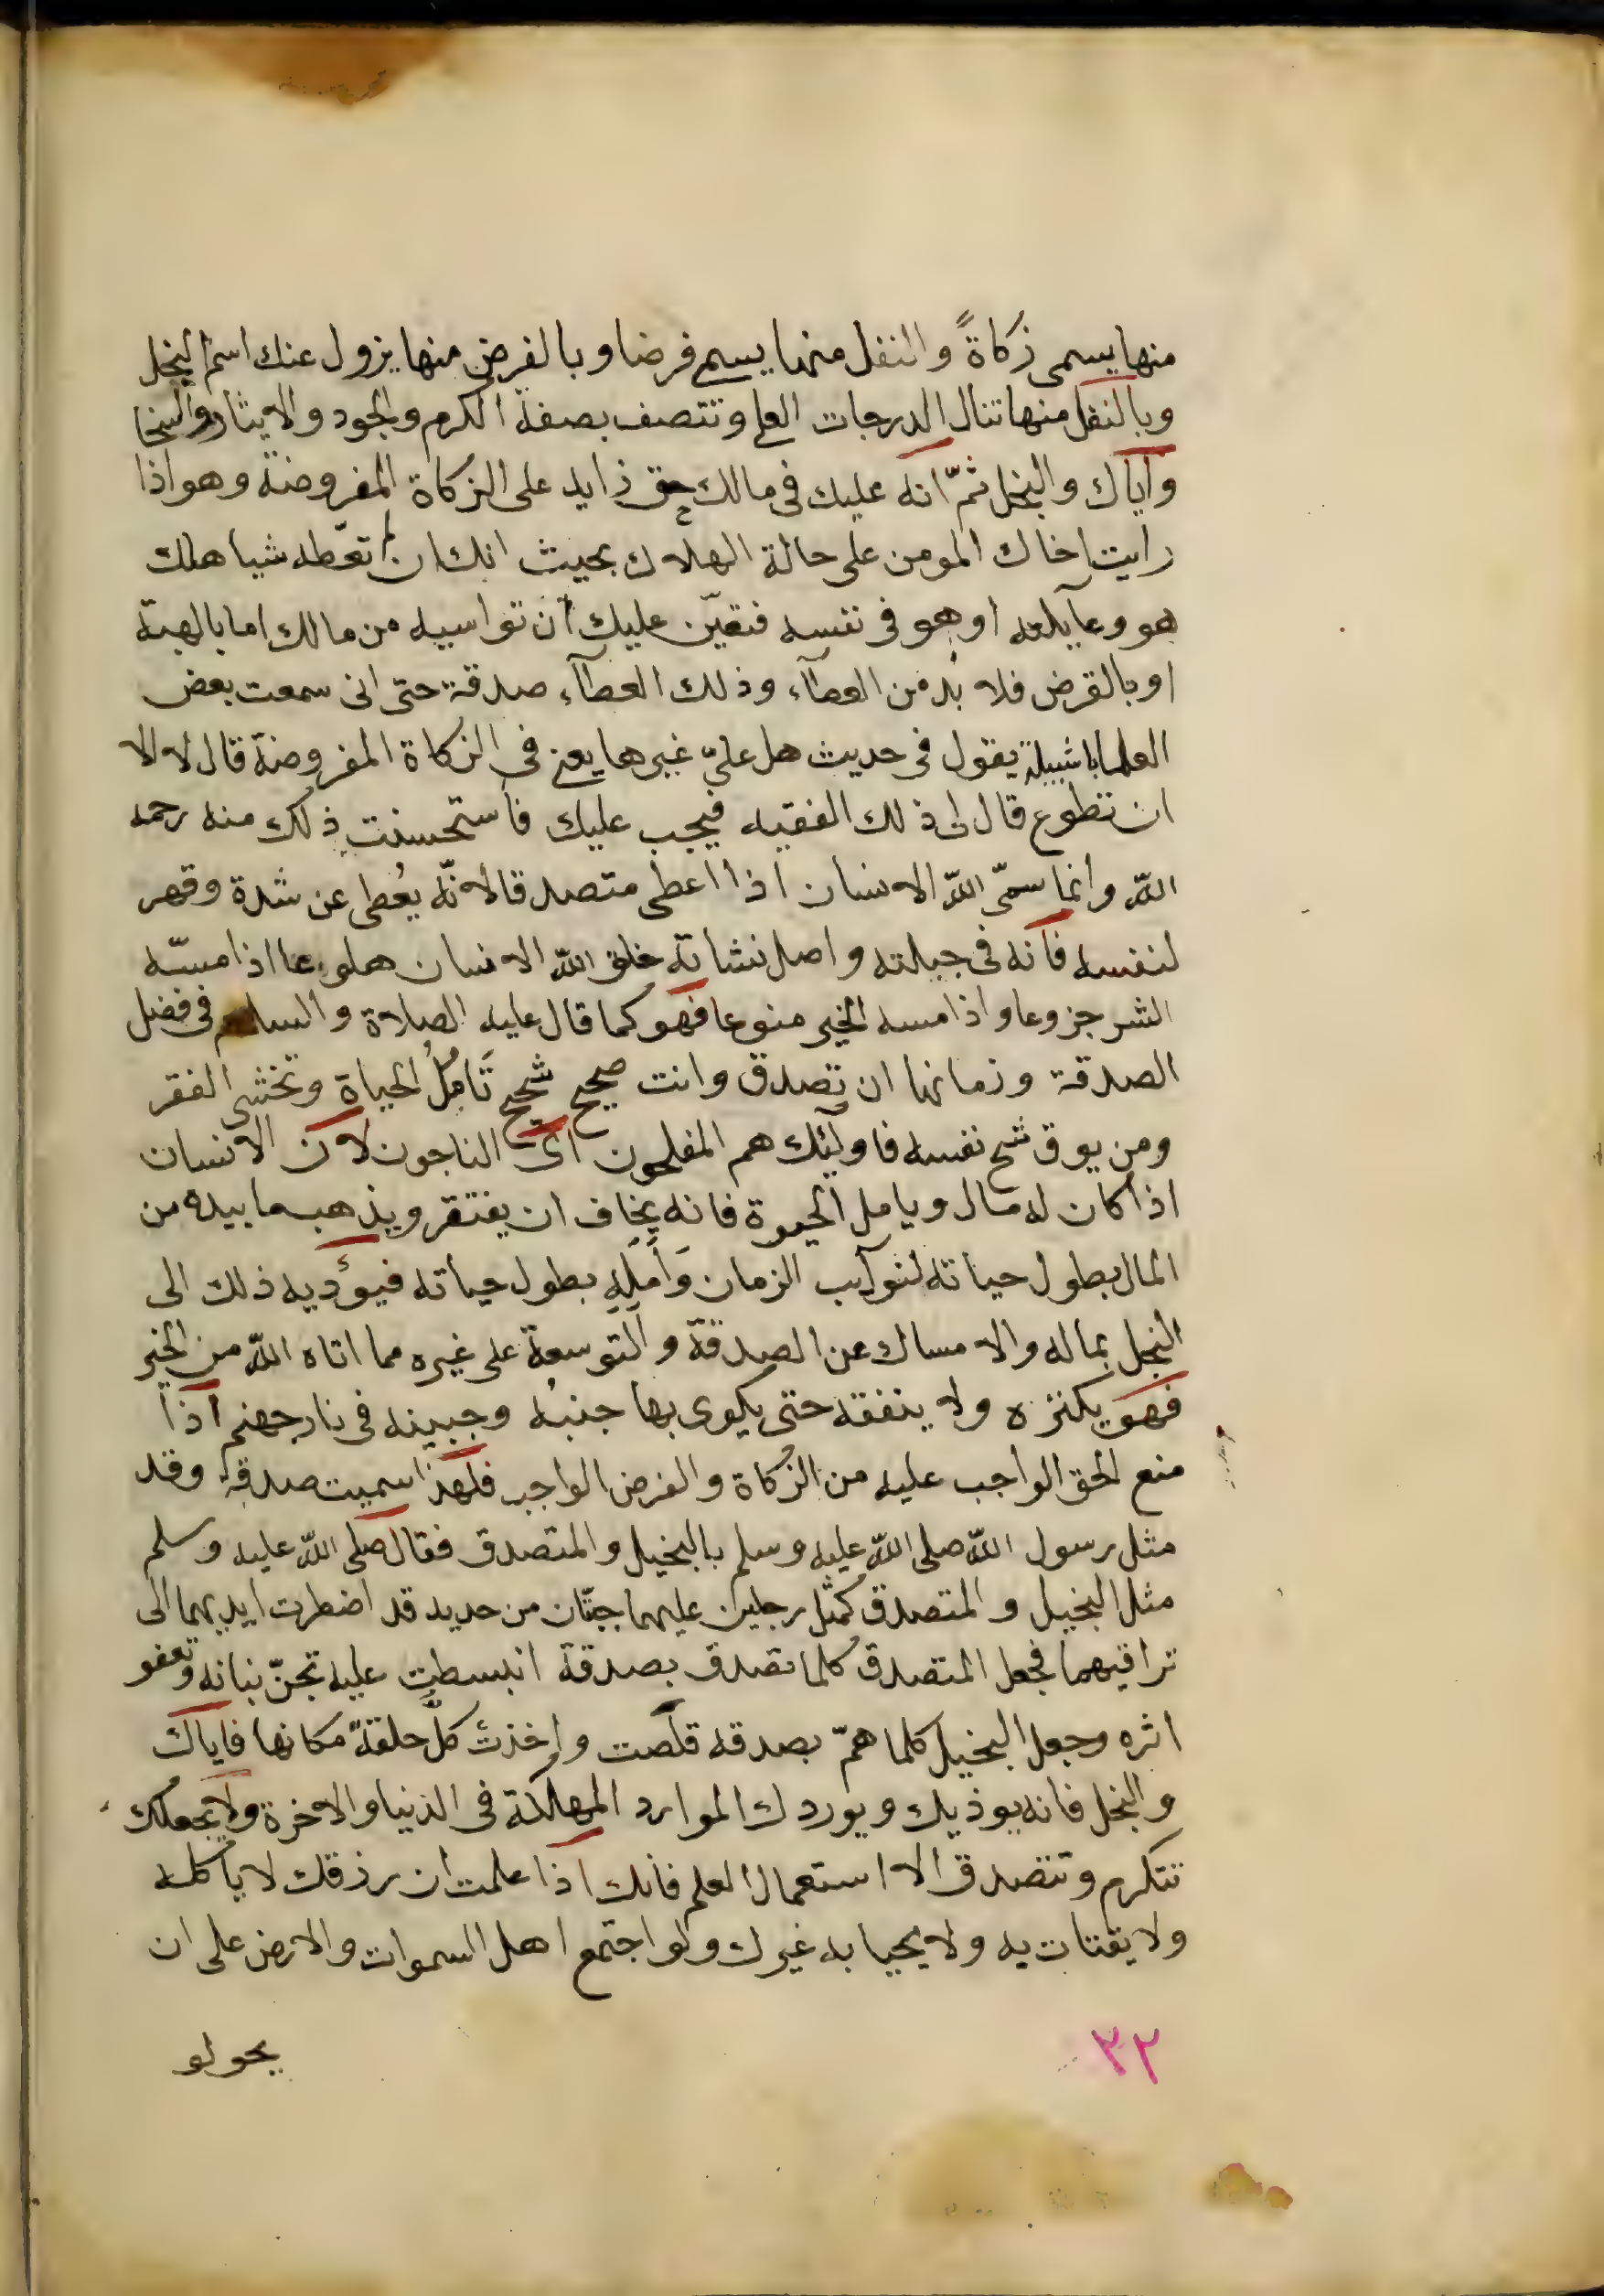 منها يسمى زكاةً والنفل منها يسمى فرضا وبالفرض منها يزول عنك اسم البخل
وبالنفل منها تنال الدرجات العلى وتتصف بصفة الكرم والجود والايثار والسخا
واياك والبخل ثمّ انه عليك فى مالك حق زايد على الزكاة المفروضة وهو اذا
رايت اخاك المومن على حالة الهلاك بحيث انك ان لم تعطه شيا هلك
هو وعآيلته او هو فى نفسه فتعيّن عليك ان تواسيه من مالك اما بالهبة
او بالقرض فلا بُد من العطآء وذلك العطآء صدقة حتى انى سمعت بعض
العلما باشبيلة يقول فى حديث هل علىّ غيرها يعنى فى الزكاة المفروضة قال لا الا
ان تطوع قال لى ذلك الفقيه فيجب عليك فاستحسنت ذلك منه رحمه
اللّه وانما سمّى اللّه الانسان اذا اعطى متصدقا لانّه يُعطى عن شدة وقهر
لنفسه فانه فى جبلته واصل نشاته خلق اللّه الانسان هلوعا اذا مسّه
الشر جزوعا واذا مسه الخير منوعا فهو كما قال عليه الصلاة والسلام فى فضل
الصدقة وزمانها ان تصدق وانت صحيح شحيح تَامُلُ الحياة وتخشى الفقر
ومن يوق شح نفسه فاولئك هم المفلحون اى الناجون لان الانسان
اذا كان له مال ويامل الحيوة فانه يخاف ان يفتقر ويذهب ما بيده من
المال بطول حياته لنوآيب الزمان وَاَمَلِهِ بطول حياته فيؤديه ذلك الى
البخل بماله والامساك عن الصدقة والتوسعة على غيره مما اتاه اللّه من الخير
فهو يكنزه ولا ينفقه حتى يكوى بها جنبُه وجبينه فى نار جهنم اذا
منع الحق الواجب عليه من الزكاة والفرض الواجب فلهذا سميت صدقة وقد
مثل رسول اللّه صلى اللّه عليه وسلم بالبخيل والمتصدق فقال صلى اللّه عليه وسلم
مثل البخيل والمتصدق كمثل رجلين عليهما جبّتان من حديد قد اضطرت ايديهما الى
تراقيهما فجعل المتصدق كلما تصدق بصدقة انبسطت عليه تجنّ بنانه وتعفو
اثره وجعل البخيل كلما همّ بصدقه قلَصت واخذتْ كلُّ حلقةٍ مكانها فاياك
والبخل فانه يوذيك ويوردك الموارد المهلكة فى الدنيا والاخرة ولا يجعلك
تتكرم وتتصدق الا استعمال العلم فانك اذا علمت ان رزقك لا ياكله
ولا يقتات به ولا يحيا به غيرك ولو اجتمع اهل السموات والارض على ان
٣٢
يحولو